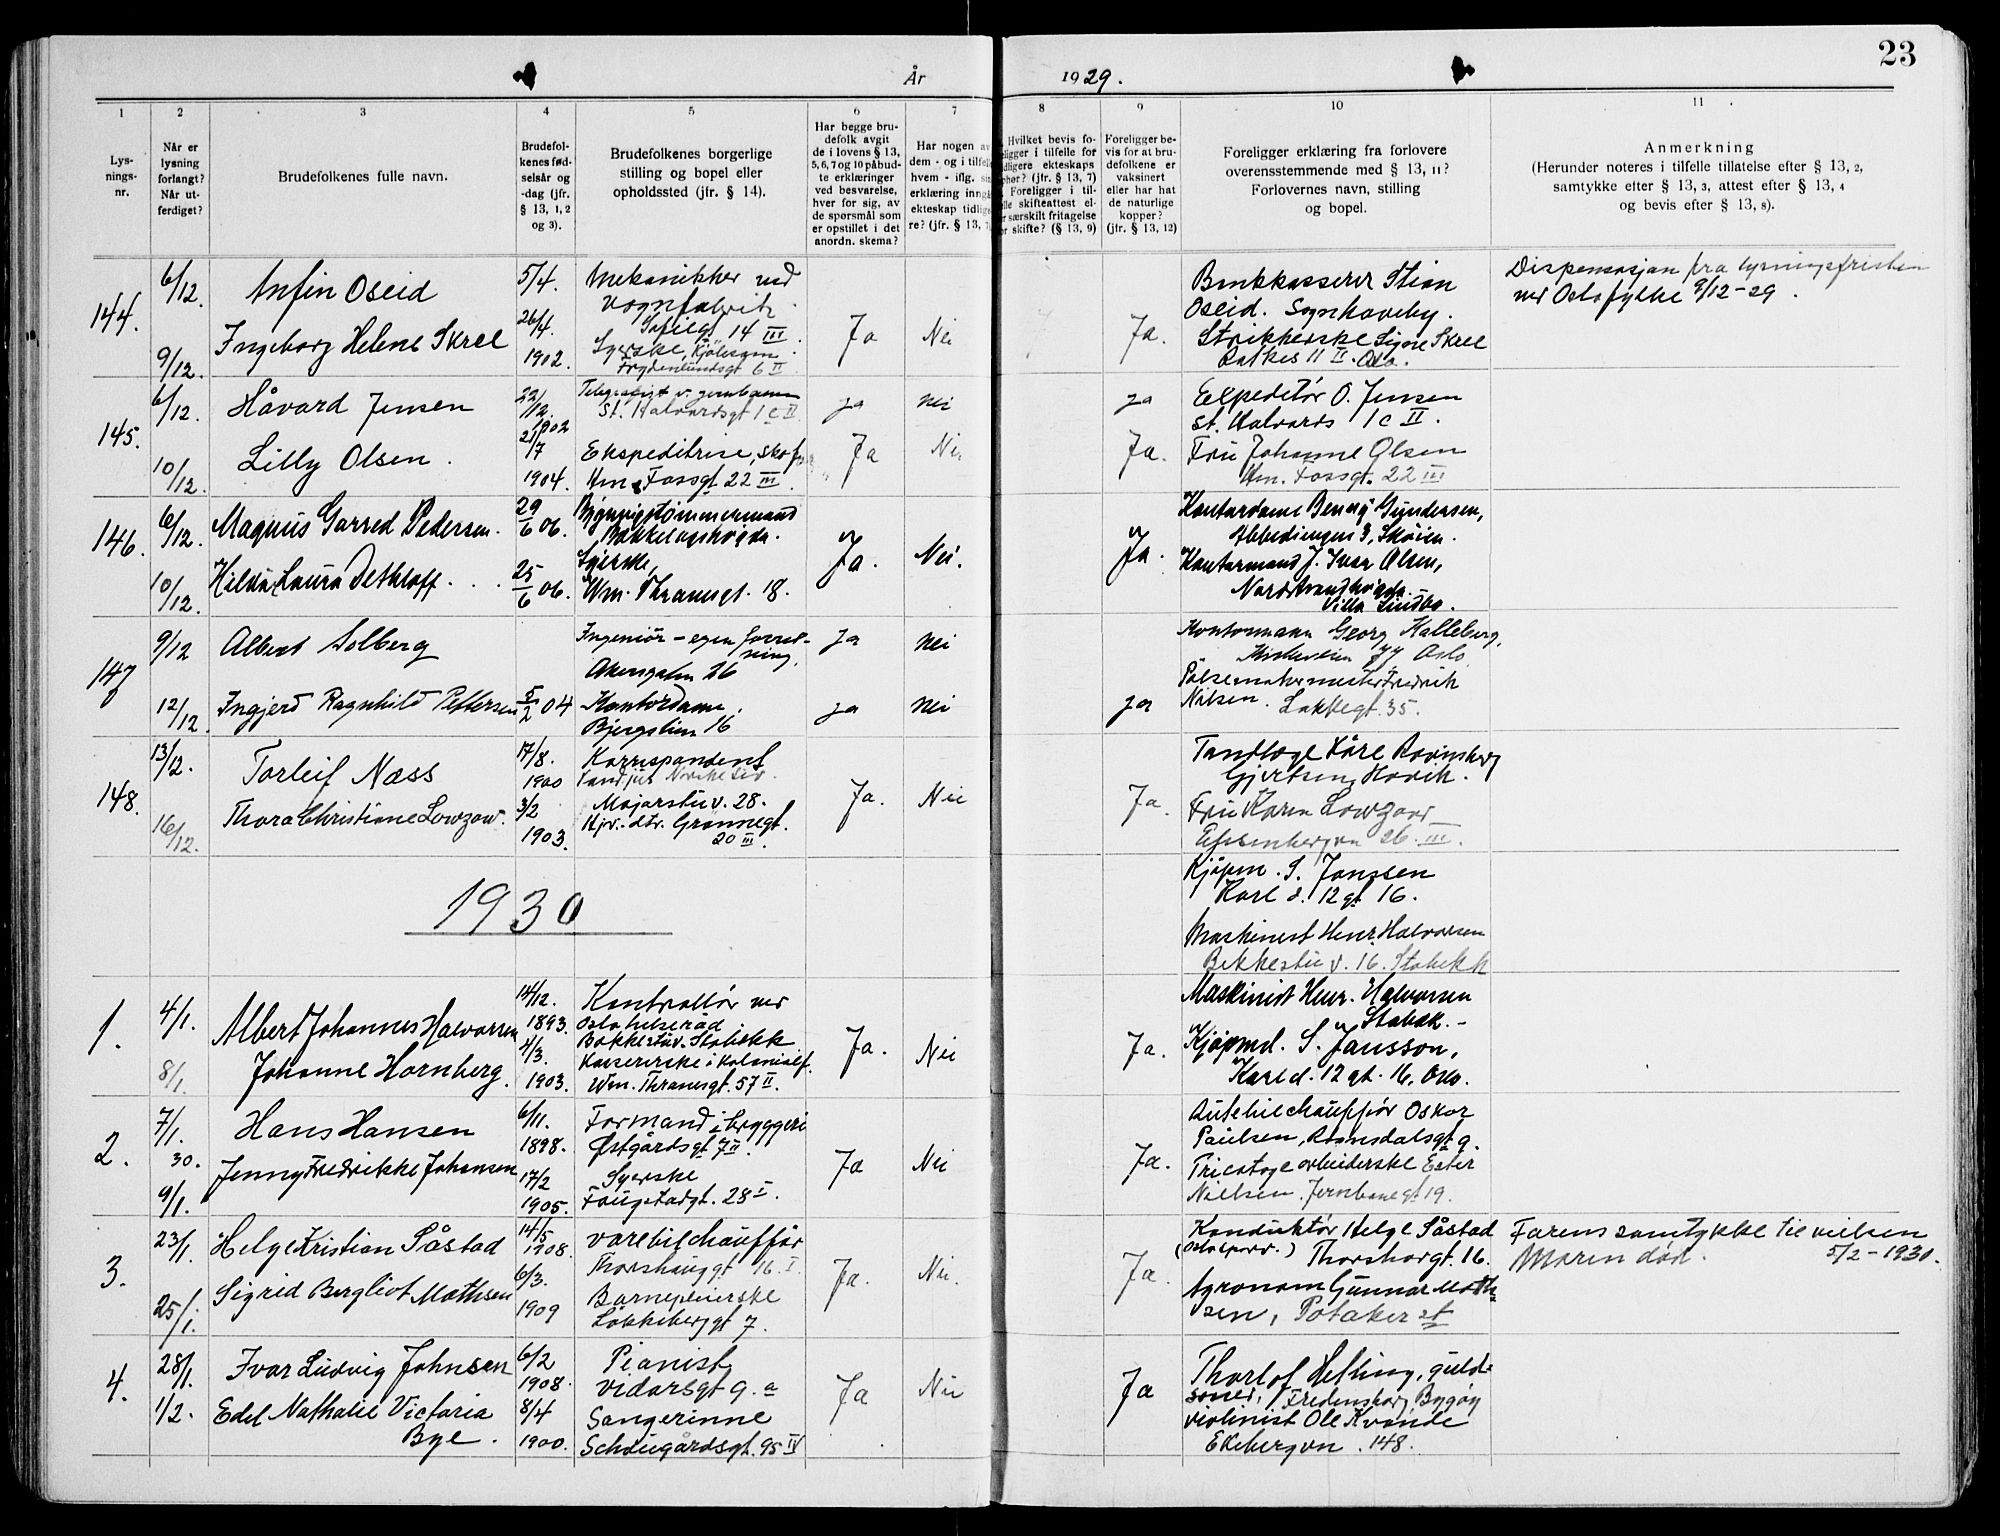 23
År
1929.
1
2
3
4
5
6
7
8
9
10
11
Lys-
nings-
nr.
Når er
lysning
forlangt?
Når ut-
ferdiget?
Brudefolkenes fulle navn.
Brudefol-
kenes fød-
selsår og
-dag (jfr.
§ 13, 1, 2
og 3).
Brudefolkenes borgerlige
stilling og bopel eller
opholdssted (jfr. § 14).
Har begge bru-
defolk avgit
de i lovens § 13,
5, 6, 7 og 10 påbud-
te erklæringer
ved besvarelse,
hver for sig, av
de spørsmål som
er opstillet i det
anordn. skema?
Har nogen av
dem - og i tilfelle
hvem - iflg.
erklæring inngå
ekteskap tidlige
re? (jfr. § 13,
Hvilket bevis fo-
ligger i tilfelle for
dligere ekteskaps
(jfr. § 13, 7)
Foreligger i til-
lle skifteattest el-
r særskilt fritagelse
or skifte? (§ 13, 9)
Foreligger be-
vis for at bru-
defolkene er
vaksinert
eller har hat
de naturlige
kopper?
(jfr. § 13, 12)
Foreligger erklæring fra forlovere
overensstemmende med § 13, 11?
Forlovernes navn, stilling
og bopel.
Anmerkning
(Herunder noteres i tilfelle tillatelse efter § 13, 2,
samtykke efter § 13, 3, attest efter § 13, 4
og bevis efter § 13, 8).
144.
6/12.
9/12.
Anfin Oseid
Ingeborg Helene Skrel
5/4.
26/4.
1902.
Mekanikker ved
vognfabrik
Sofiegt 14 III
Syerske,
Frydenlundsgt 6 II
Ja
Nei
Ja.
Bankkasserer Stian
Oseid. Sognhaveby.
Strikkerske Signe Skrel
11 II. Oslo.
Dispensasjon fra lysningsfristen
ved Oslo fylke 9/12-29.
145.
6/12.
10/12.
Håvard Jensen
Lilly Olsen.
22/12.
1902
21/7
1904.
Telegrafist v. jernbanen
St. Halvardsgt 1 c II
Ekspeditrise,
Hm. Fossgt 22 III
ja
nei
Ja
Nei
ja
Ja.
Ekspeditør O. Jensen
St. Halvards 1 c II.
Fru Johanne Olsen
Hm. Fossgt. 22 III
146.
6/12.
10/12.
Magnus Garred Pedersen.
Hilda Laura Dethloff.
29/6 06.
25/6 06.
Bygningstømmermand
Bækkelagshøgda.
Syerske,
Wm. Thranesgt. 18.
Ja.
Nei.
Ja.
Kontordame Gundersen,
Abbediengen 3, Skøien.
Kontormand J. Ivar Olsen,
Nordstrandhøgda.
Villa Lindbo.
147
9/12
12/12.
Albert Solberg
Ingjerd Ragnhild Pettersen
5/2 04
Ingeniør – egen forret-
ning,
Akersgaten 26
Kontordame.
Bjergslien 16
ja
nei
ja
nei
ja
Kontormann Georg Halleberg,
Kirkeveien 77 Oslo
Pølsemakermester Fredrik
Nilsen. Lakkegt. 35.
148.
13/12.
16/12.
Torleif Næss
Thora Christiane Lowzow.
17/8.
1900
3/2
1903.
Korrespondent
Norske Liv.
Majorstuv. 28.
Hjv. dtr. Grønnegt.
20 III.
Ja.
Nei
Ja.
Tandlæge Kåre Ravinsberg
Gjertsen, Høvik.
Fru Karen Lowzow
26. III.
Kjøpm. S. Janssen
Karl d. 12 gt 16.
Maskinist Henr. Halvorsen
Bekkestu v. 16. Stabekk
1930
1.
4/1.
8/1.
Albert Johannes Halvorsen
Johanne Hornberg.
14/12.
1893.
4/3.
1903.
Kontrollør ved
Oslo helseråd
Bekkestuv. Stabekk
Kassererske i Kolonialf.
Wm. Thranesgt. 57 II.
Ja.
Nei
Ja.
Maskinist Henr. Halvorsen
Stabæk.-
Kjøpmd. S. Jansson,
Karl d. 12 gt. 16, Oslo.
2.
7/1.
30.
9/1.
Hans Hansen
Jenny Fredrikke Johansen
6/11.
1898.
17/2
1905.
Formand i bryggeri
Østgårdsgt 7 II.
Syerske
Faugstadgt. 28 I.
Ja
Nei
Ja.
Autobilchauffør Oskar
Paulsen, Romsdalsgt 9.
Tricotagearbeiderske Ester
Nielsen. Jernbanegt 19.
3.
23/1.
25/1.
Helge Kristian Såstad
Sigrid Bergliot Mathsen
14/5
1908.
6/3.
1909
Varebilchauffør
Thorshauggt 16. I.
Barnepleierske
Løkkeberggt 7.
Ja.
Nei.
Ja.
Konduktør Helge Såstad
(Oslo sporv.) Thorshovgt. 16.
Agronom Gunnar Math-
sen, Potaker st
Farens samtykke til vielsen
5/2-1930.
Moren død.
4.
28/1.
1/2.
Ivar Ludvig Johnsen
Edel Nathalie Victoria
Bye.
6/2
1908.
8/4
1900.
Pianist
Vidarsgt 9. a
Sangerinne
Schougårdsgt. 95 IV
Ja
Nei
Ja
Thorlof Helling, guld-
smed, Fredensborg Bygdøy
Violinist Ole Kvande
Ekebergvn. 148.